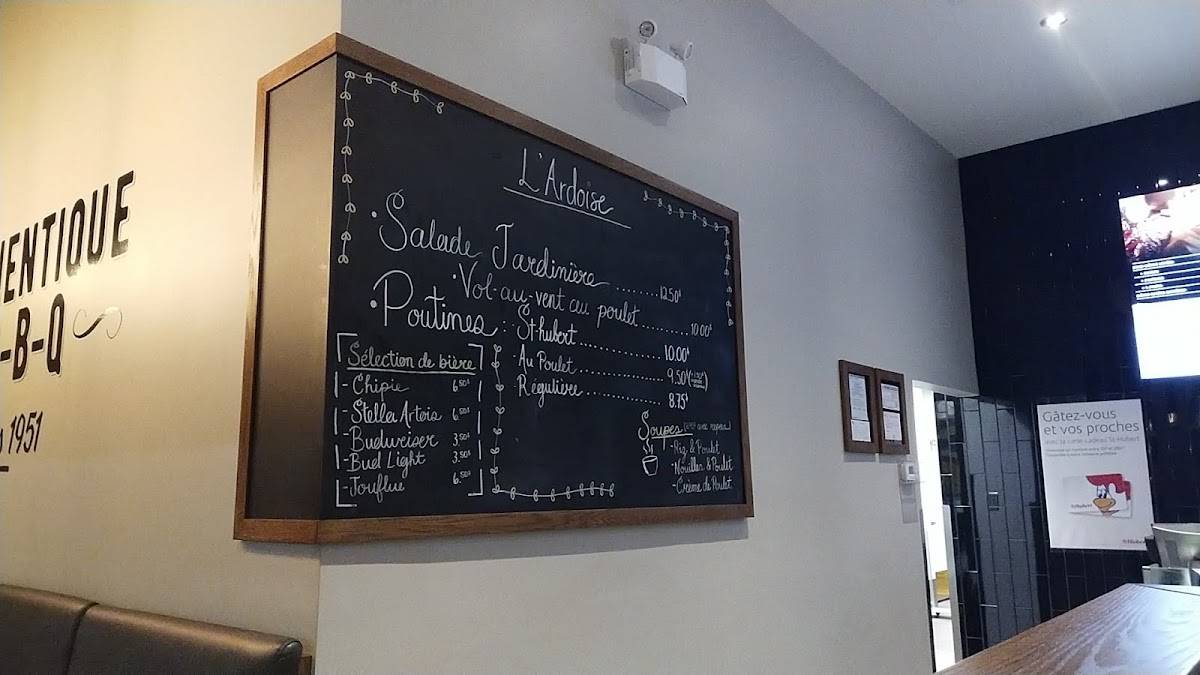 HENTIQUE
-B-Q
1951
L'Ardoise
• Salade Jardinière ........ 12.50$
• Vol-au-vent au poulet ......... 10.00$
• Poutines: St-hubert ............. 10.00$
- Au Poulet ............. 9.50$
- Régulière ............. 8.75$
Sélection de bière
- Chipie 6.50$
- Stella Artois 6.50$
- Budweiser 3.50$
- Bud Light 3.50$
- Jouflue 6.50$
Soupes
- Riz & Poulet
- Nouilles & Poulet
- Crème de Poulet
Gâtez-vous
et vos proches
avec la carte-cadeau St-Hubert